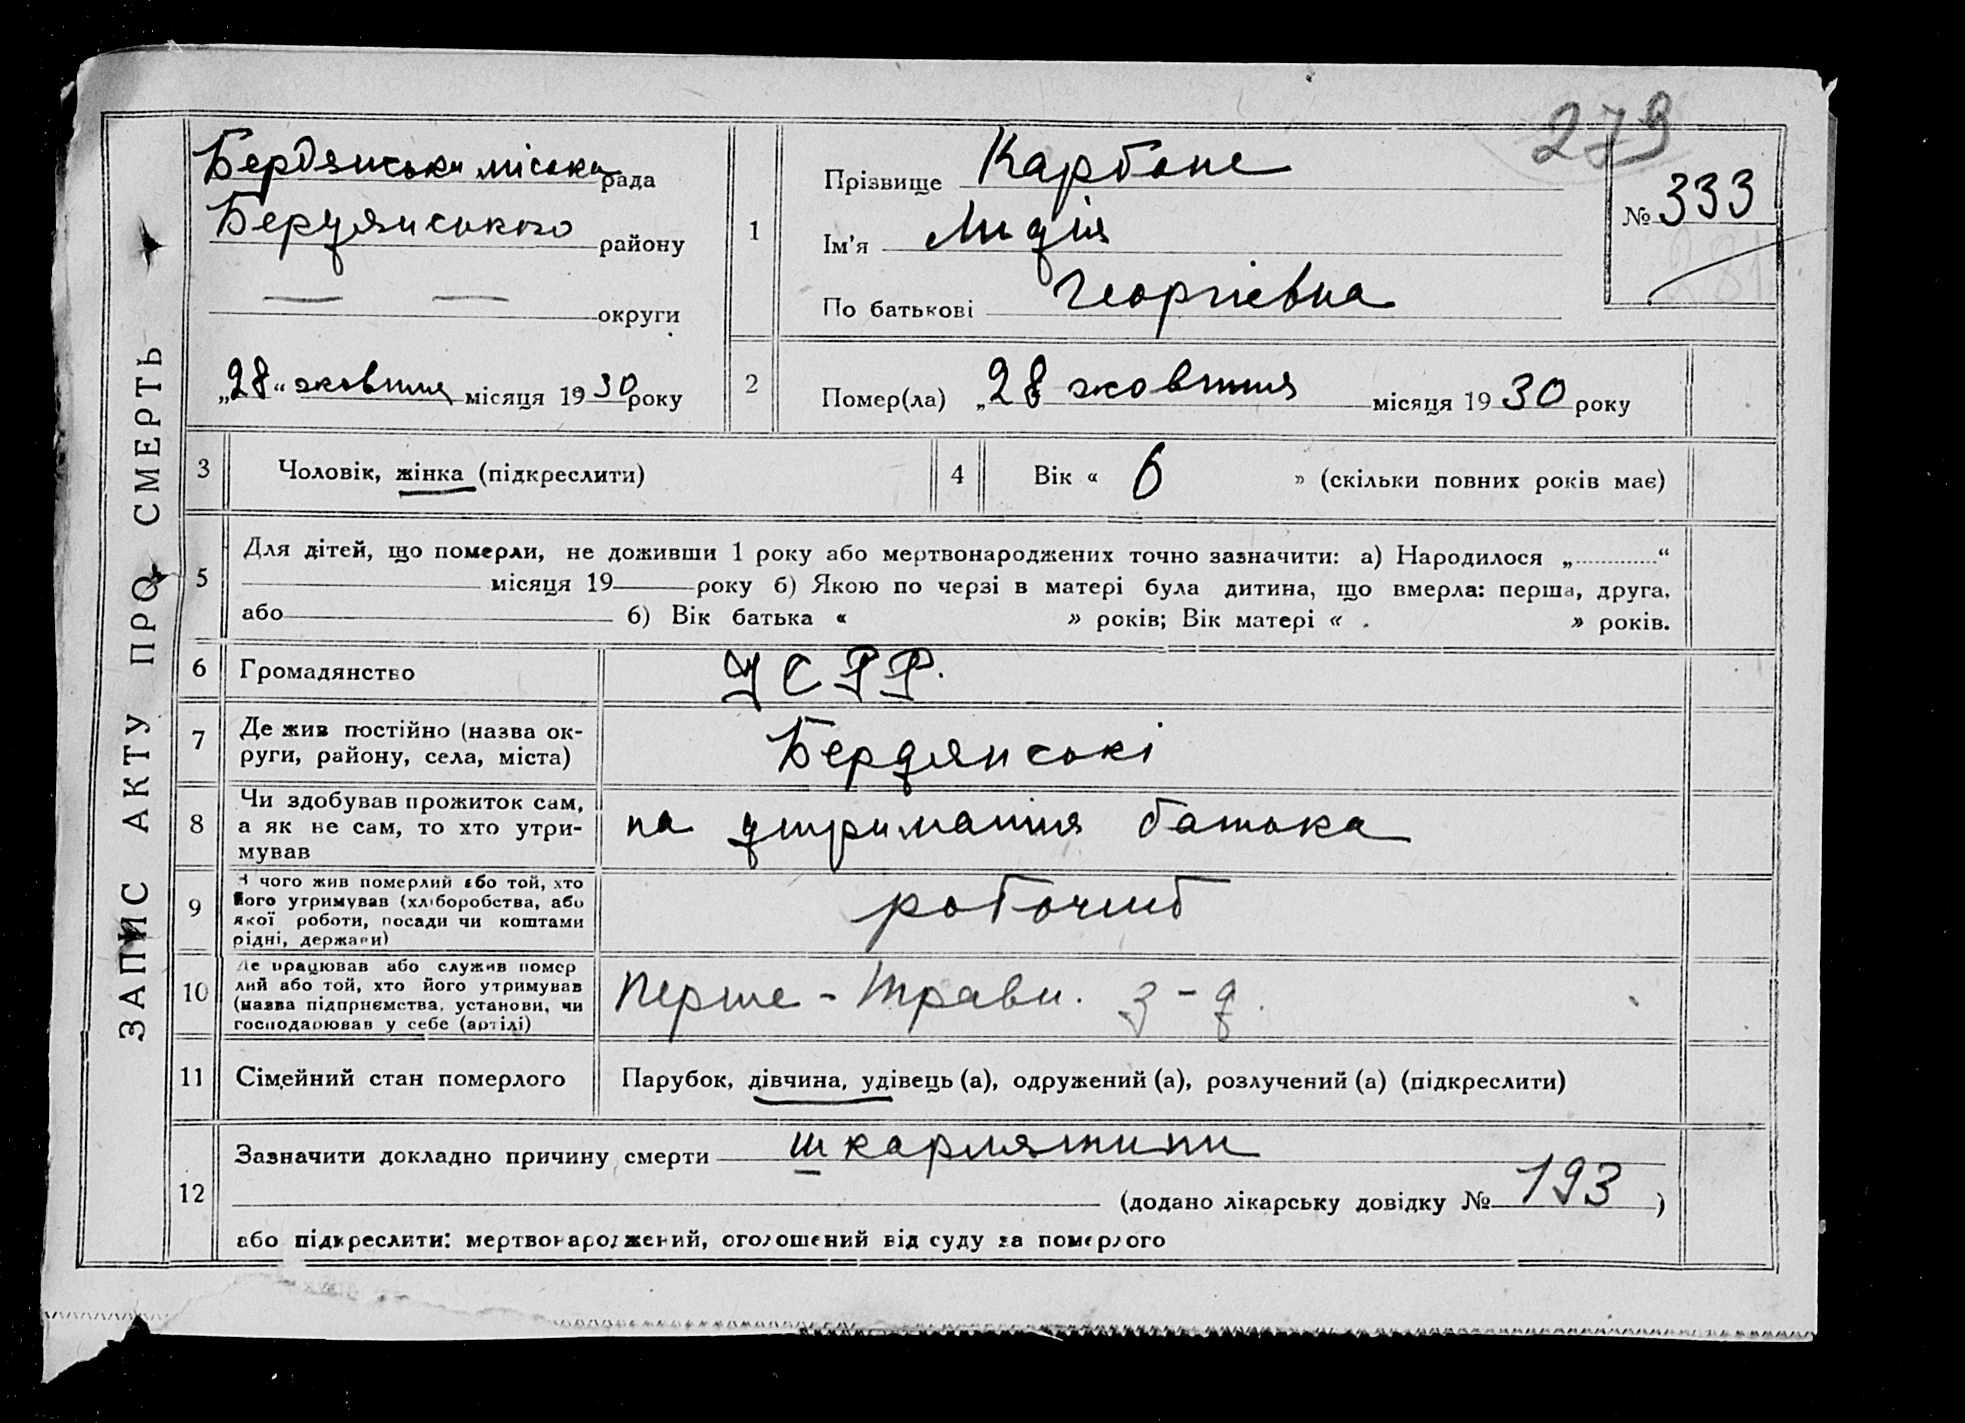 ЗАПИС АКТУ ПРО СМЕРТЬ
Бердянська міська рада
Бердянського району
округи
„28“ жовтня місяця 1930 року
279
№ 333
281
1
Прізвище Карбоне
Ім'я Лидія
По батькові Георгієвна
2
Помер(ла) „28 жовтня місяця 1930 року
3
Чоловік, жінка (підкреслити)
4
Вік « 6 » (скільки повних років має)
5
Для дітей, що померли, не доживши 1 року або мертвонароджених точно зазначити: а) Народилося „............“
місяця 19 року б) Якою по черзі в матері була дитина, що вмерла: перша, друга,
або б) Вік батька « » років; Вік матері « » років.
6
Громадянство УСРР.
7
Де жив постійно (назва ок-
руги, району, села, міста)
Бердянські
8
Чи здобував прожиток сам,
а як не сам, то хто утри-
мував
на утримання батька
9
З чого жив померлий або той, хто
його утримував (хліборобства, або
якої роботи, посади чи коштами
рідні, держави)
робочий
10
Де працював або служив помер
лий або той, хто його утримував
(назва підприємства, установи, чи
господарював у себе (артілі)
Перше-Травн. з-д.
11
Сімейний стан померлого
Парубок, дівчина, удівець (а), одружений (а), розлучений (а) (підкреслити)
12
Зазначити докладно причину смерти шкарлятини
(додано лікарську довідку № 193)
або підкреслити: мертвонароджений, оголошений від суду за померлого